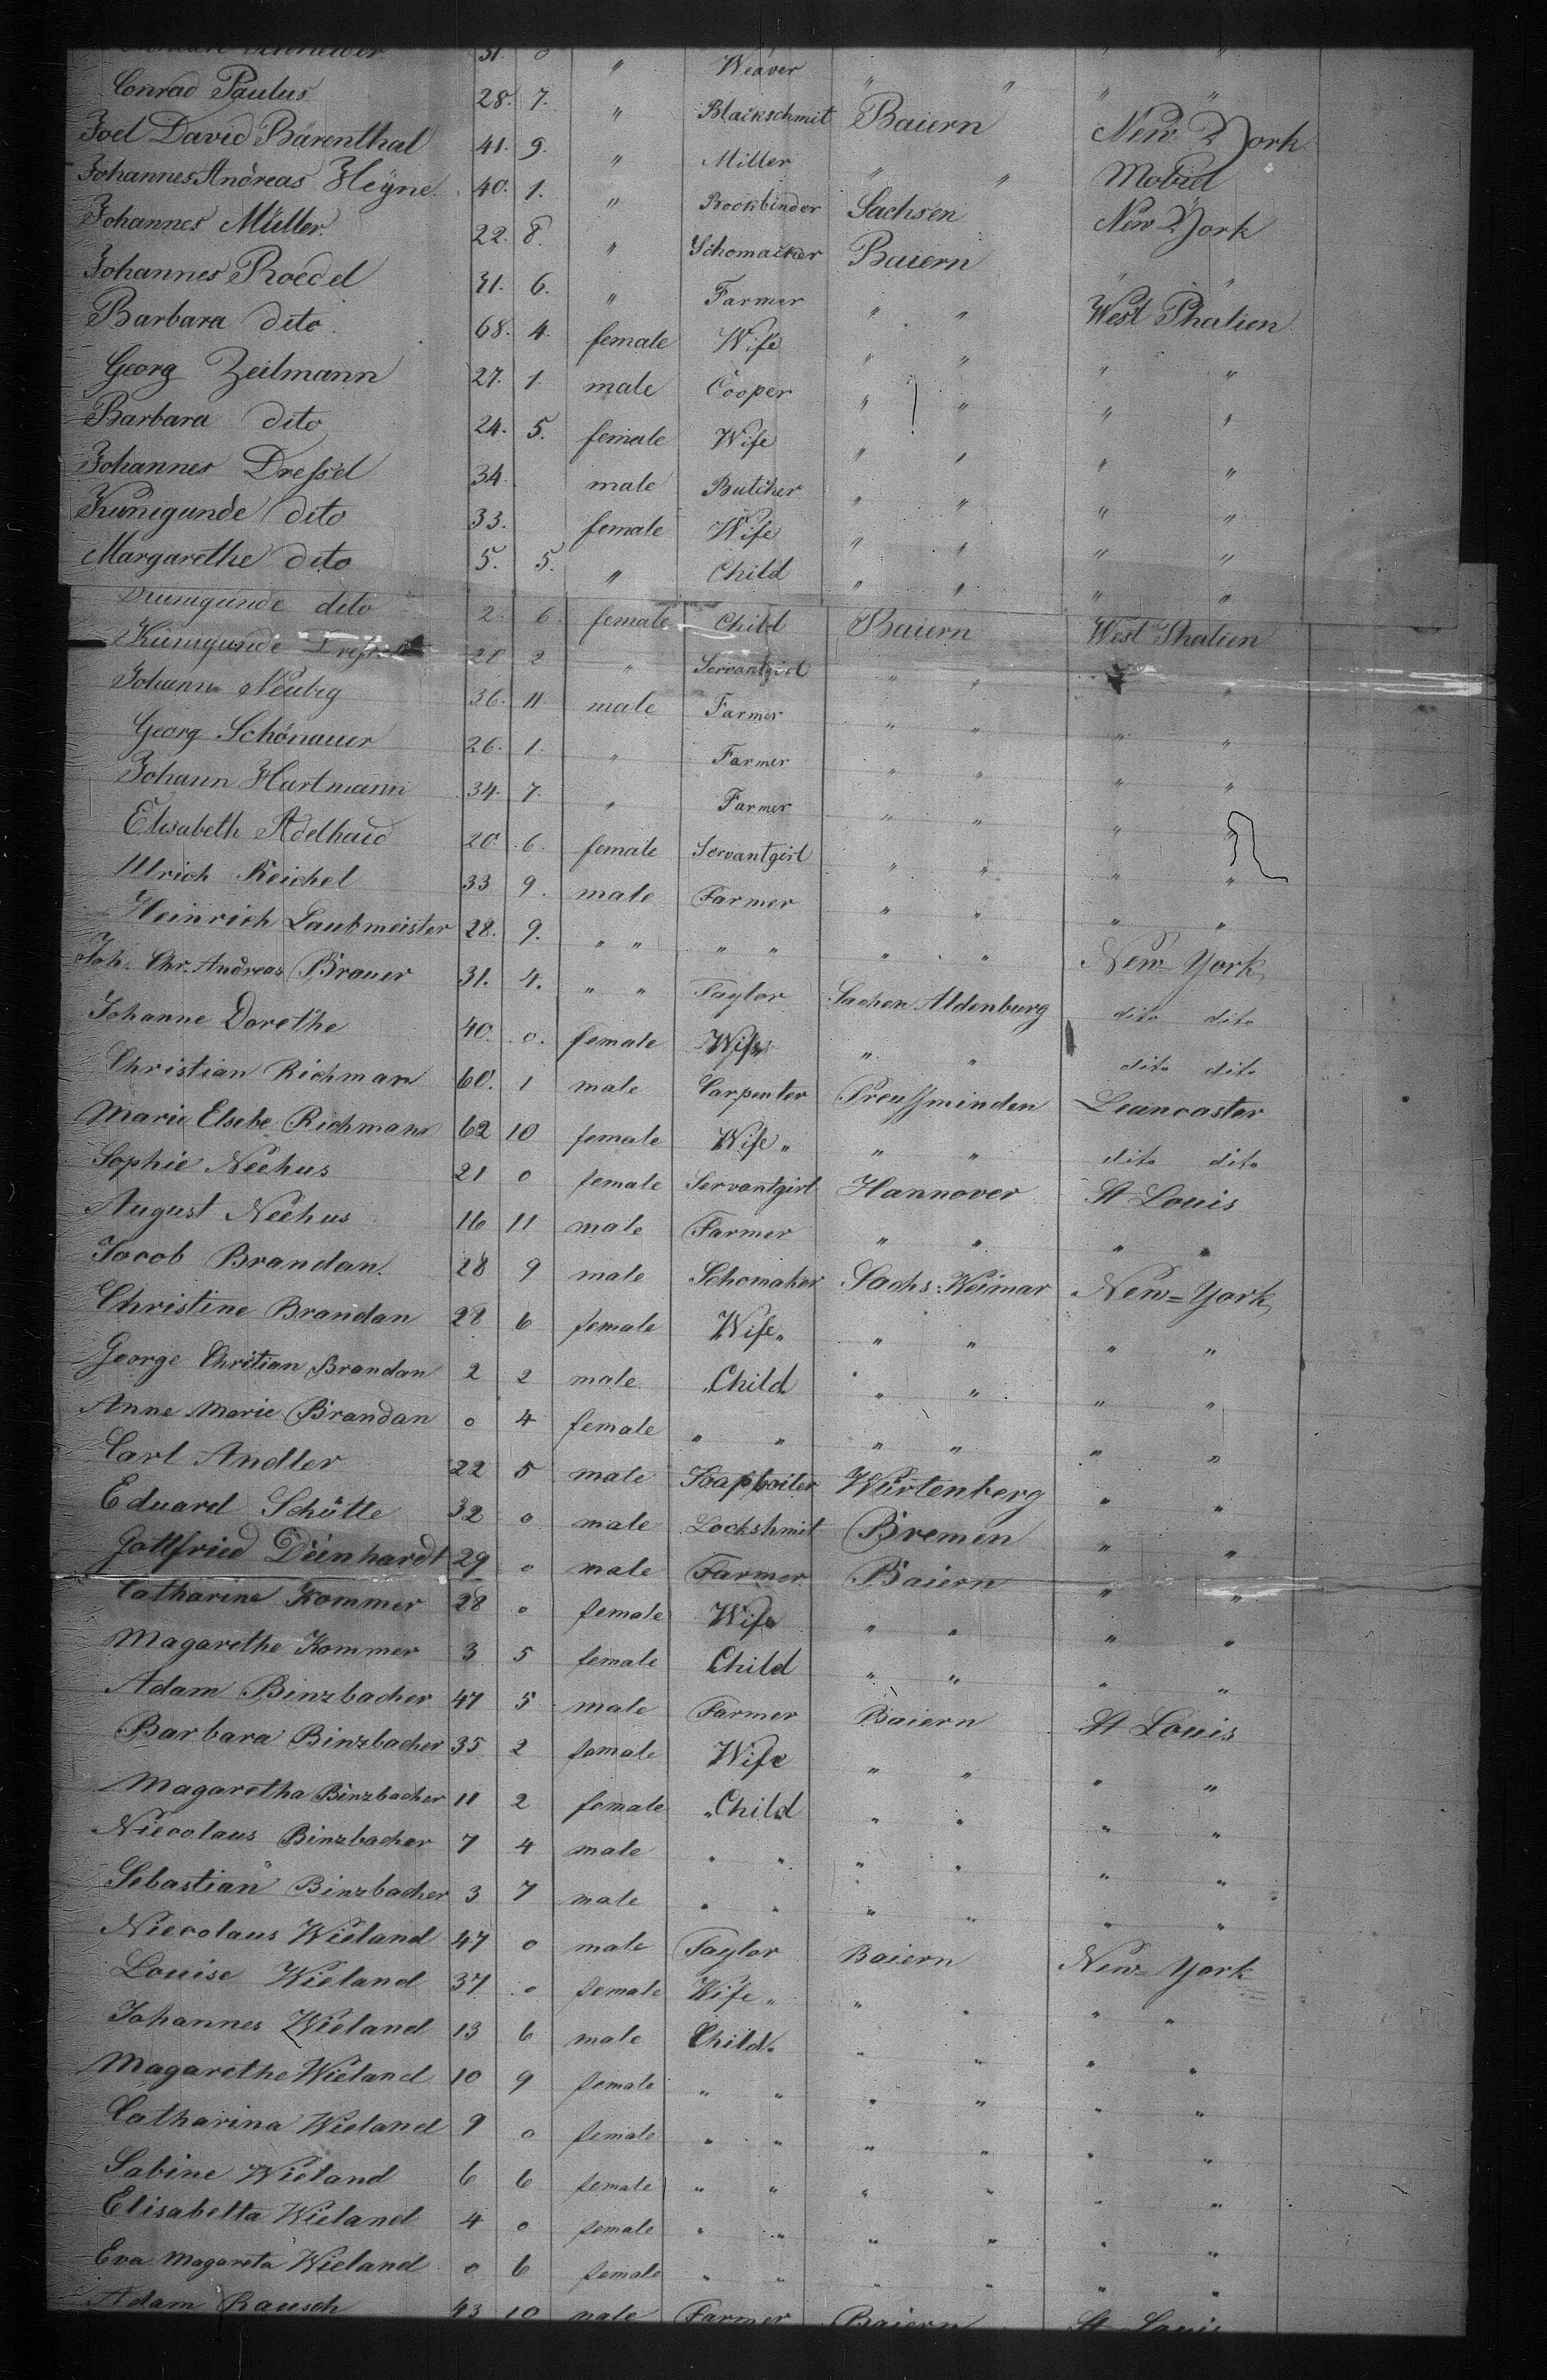 31. 8 " Weaver " " " "
Conrad Paulus 28. 7. " Blackschmit Baiern New York
Joel David Bärenthal 41. 9. " Miller " " Mobiel
Johannes Andreas Heÿne 40. 1. " Bookbinder Sachsen New York
Johannes Müller 22. 8. " Schomacker Baiern " "
Johannes Roedel 31. 6. " Farmer " " West Phalien
Barbara dito 68. 4. female Wife " " " "
Georg Zeilmann 27. 1. male Cooper " " " "
Barbara dito 24. 5. female Wife " " " "
Johannes Dreßel 34. male Butcher " " " "
Kunigunde dito 33. female Wife " " " "
Margarethe dito 5. 5. " Child " " " "
Kunigunde dito 2. 6 female Child Baiern West Phalien
Kunigunde 20 2 " Servantgirl " " "
Johann Neubig 36. 11 male Farmer " " " "
Georg Schönauer 26. 1. " Farmer " " " "
Johann Hartmann 34. 7. " Farmer " " " "
Elisabeth Adelhaid 20. 6. female Servantgirl " " " "
Ulrich Reichel 33. 9. male Farmer " " " "
Heinrich Laubmeister 28. 9. " " " " " " New-York
Joh. Chr. Andreas Brauer 31. 4. " " Taylor Sachen Aldenburg dito dito
Johanne Dorethe 40. 0. female Wife " " dito dito
Christian Richman 60. 1 male Carpenter Preussminden Leancaster
Marie Elsebe Richmann 62 10 female Wife " " " dito dito
Sophie Neehus 21 0 female Servantgirl Hannover St Louis
August Neehus 16 11 male Farmer " " " "
Jacob Brandan. 28 9 male Schomaker Sachs: Weimar New=York
Christine Brandan 28 6 female Wife " " " " "
George Chritian Brandan 2 2 male Child " " " "
Anne Marie Brandan 0 4 female " " " " " "
Carl Andler 22 5 male Soapboiler Würtenberg " "
Eduard Schütte 32 0 male Lockshmit Bremen " "
Gottfried Deinhardt 29 0 male Farmer Baiern " "
Catharine Kommer 28 0 female Wife " " " "
Magarethe Kommer 3 5 female Child " " " "
Adam Binzbacher 47 5 male Farmer Baiern St Louis
Barbara Binzbacher 35 2 female Wife " " " "
Magaretha Binzbacher 11 2 female "Child " " " "
Niecolaus Binzbacher 7 4 male " " " " " "
Sebastian Binzbacher 3 7 male " " " " " "
Niecolaus Wieland 47 0 male Taylor Baiern New-York
Louise Wieland 37 0 female Wife " " " " "
Johannes Wieland 13 6 male Child " " " " "
Magarethe Wieland 10 9 female " " " " " "
Catharina Wieland 9 0 female " " " " " "
Sabine Wieland 6 6 female " " " " " "
Elisabetta Wieland 4 0 female " " " " " "
Eva Magareta Wieland 0 6 female " " " " " "
Adam Rausch 43 10 male Farmer Baiern St Louis